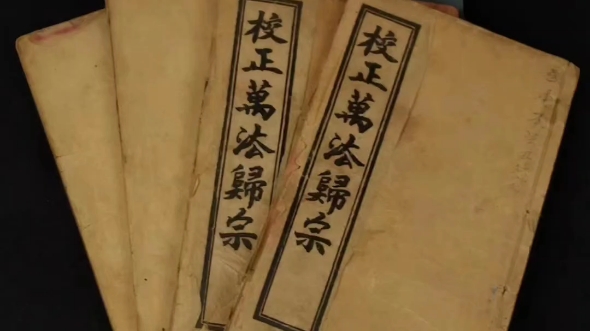 校正萬法歸宗
校正萬法歸宗